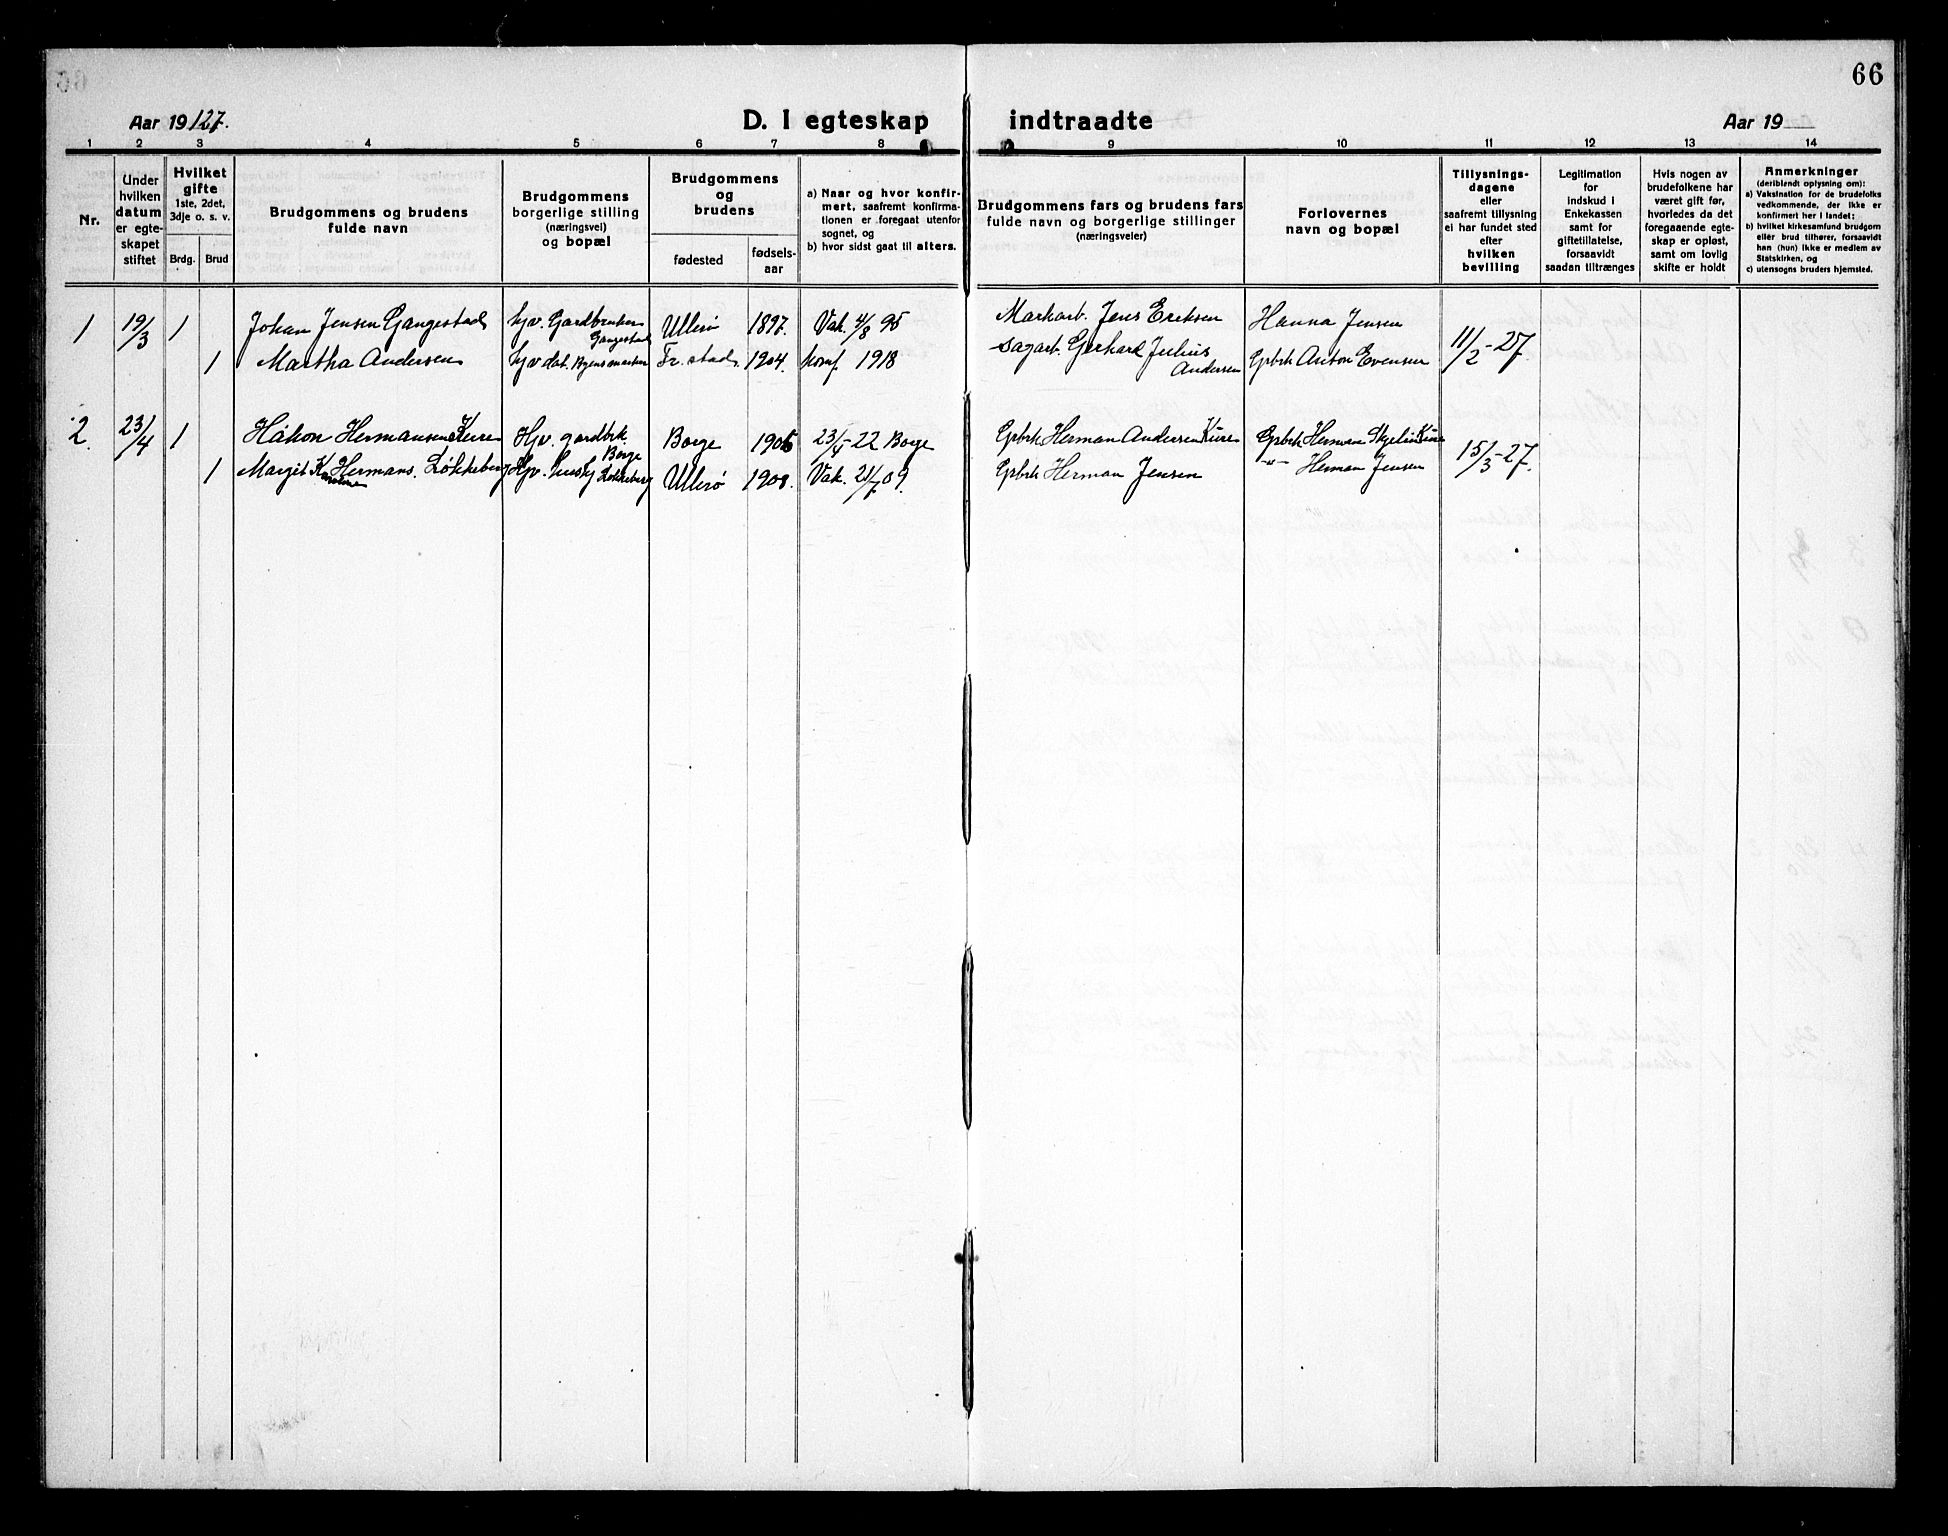 66
Aar 19127.
D. I egteskap
indtraadte
Aar 19
1 2 3 4 5 6 7 8 9 10 11 12 13 14
Nr.
Under
hvilken
datum
er egte-
skapet
stiftet
Hvilket
gifte
1ste, 2det,
3dje o. s. v.
Brdg. Brud
Brudgommens og brudens
fulde navn
Brudgommens
borgerlige stilling
(næringsvei)
og bopæl
Brudgommens
og
brudens
fødested
fødsels-
aar
a) Naar og hvor konfir-
mert, saafremt konfirma-
tionen er foregaat utenfor
sognet, og
b) hvor sidst gaat til alters.
Brudgommens fars og brudens fars
fulde navn og borgerlige stillinger
(næringsveier)
Forlovernes
navn og bopæl
Tillysnings-
dagene
eller
saafremt tillysning
ei har fundet sted
efter
hvilken
bevilling
Legitimation
for
indskud i
Enkekassen
samt for
giftetillatelse,
forsaavidt
saadan tiltrænges
Hvis nogen av
brudefolkene har
været gift før,
hvorledes da det
foregaaende egte-
skap er opløst,
samt om lovlig
skifte er holdt
Anmerkninger
(deriblandt oplysning om):
a) Vaksination for de brudefolks
vedkommende, der ikke er
konfirmert her i landet;
b) hvilket kirkesamfund brudgom
eller brud tilhører, forsaavidt
han (hun) ikke er medlem av
Statskirken, og
c) utensogns bruders hjemsted.
1 19/3 1 Johan Jensen Gangestad hjv. Gardbruker Gangestad Ullerø 1897. Vak. 4/8 98 Markarb. Jens Eriksen Hanna Jensen 11/2-27
1 Martha Andersen hjv dat. Fr. stad. 1904. konf 1918 Sagarb. Gerhard Julius Andersen Gpbrk Anton Evensen
2. 23/4 1 Håkon Hermansen Kure Hjv. gardbrk. Borge Borge 1905 23/4-22 Borge Gpbrk Herman Andersen Kure Gpbrk Herman Skjelin Kure 15/3-27.
1 Margit Karine Hermans. Løkkeberg Hjv. Løkkeberg Ullerø 1908. Vak. 21/7 09. Gpbrk Herman Jensen -"- Herman Jensen